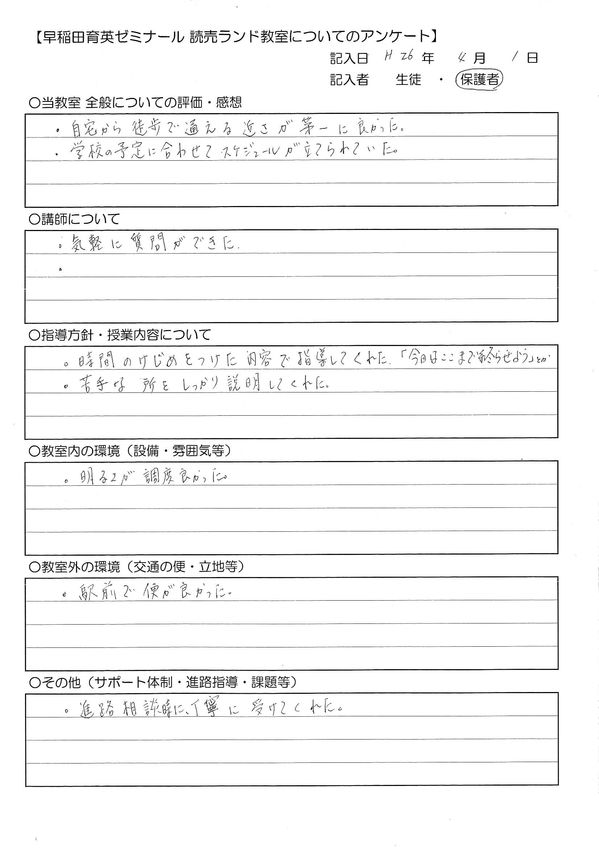 【早稲田育英ゼミナール 読売ランド教室についてのアンケート】
記入日 H 26 年 4 月 1 日
記入者 生徒 ・ 保護者
〇当教室 全般についての評価・感想
・自宅から徒歩で通える近さが第一に良かった。
・学校の予定に合わせてスケジュールが立てられていた。
〇講師について
・気軽に質問ができた.
・
〇指導方針・授業内容について
・時間のけじめをつけた内容で指導してくれた.「今日はここまで終らせよう」とか
・苦手な所をしっかり説明してくれた。
〇教室内の環境（設備・雰囲気等）
・明るさが調度良かった。
〇教室外の環境（交通の便・立地等）
・駅前で便が良かった。
〇その他（サポート体制・進路指導・課題等）
・進路相談時に、丁寧に受けてくれた。